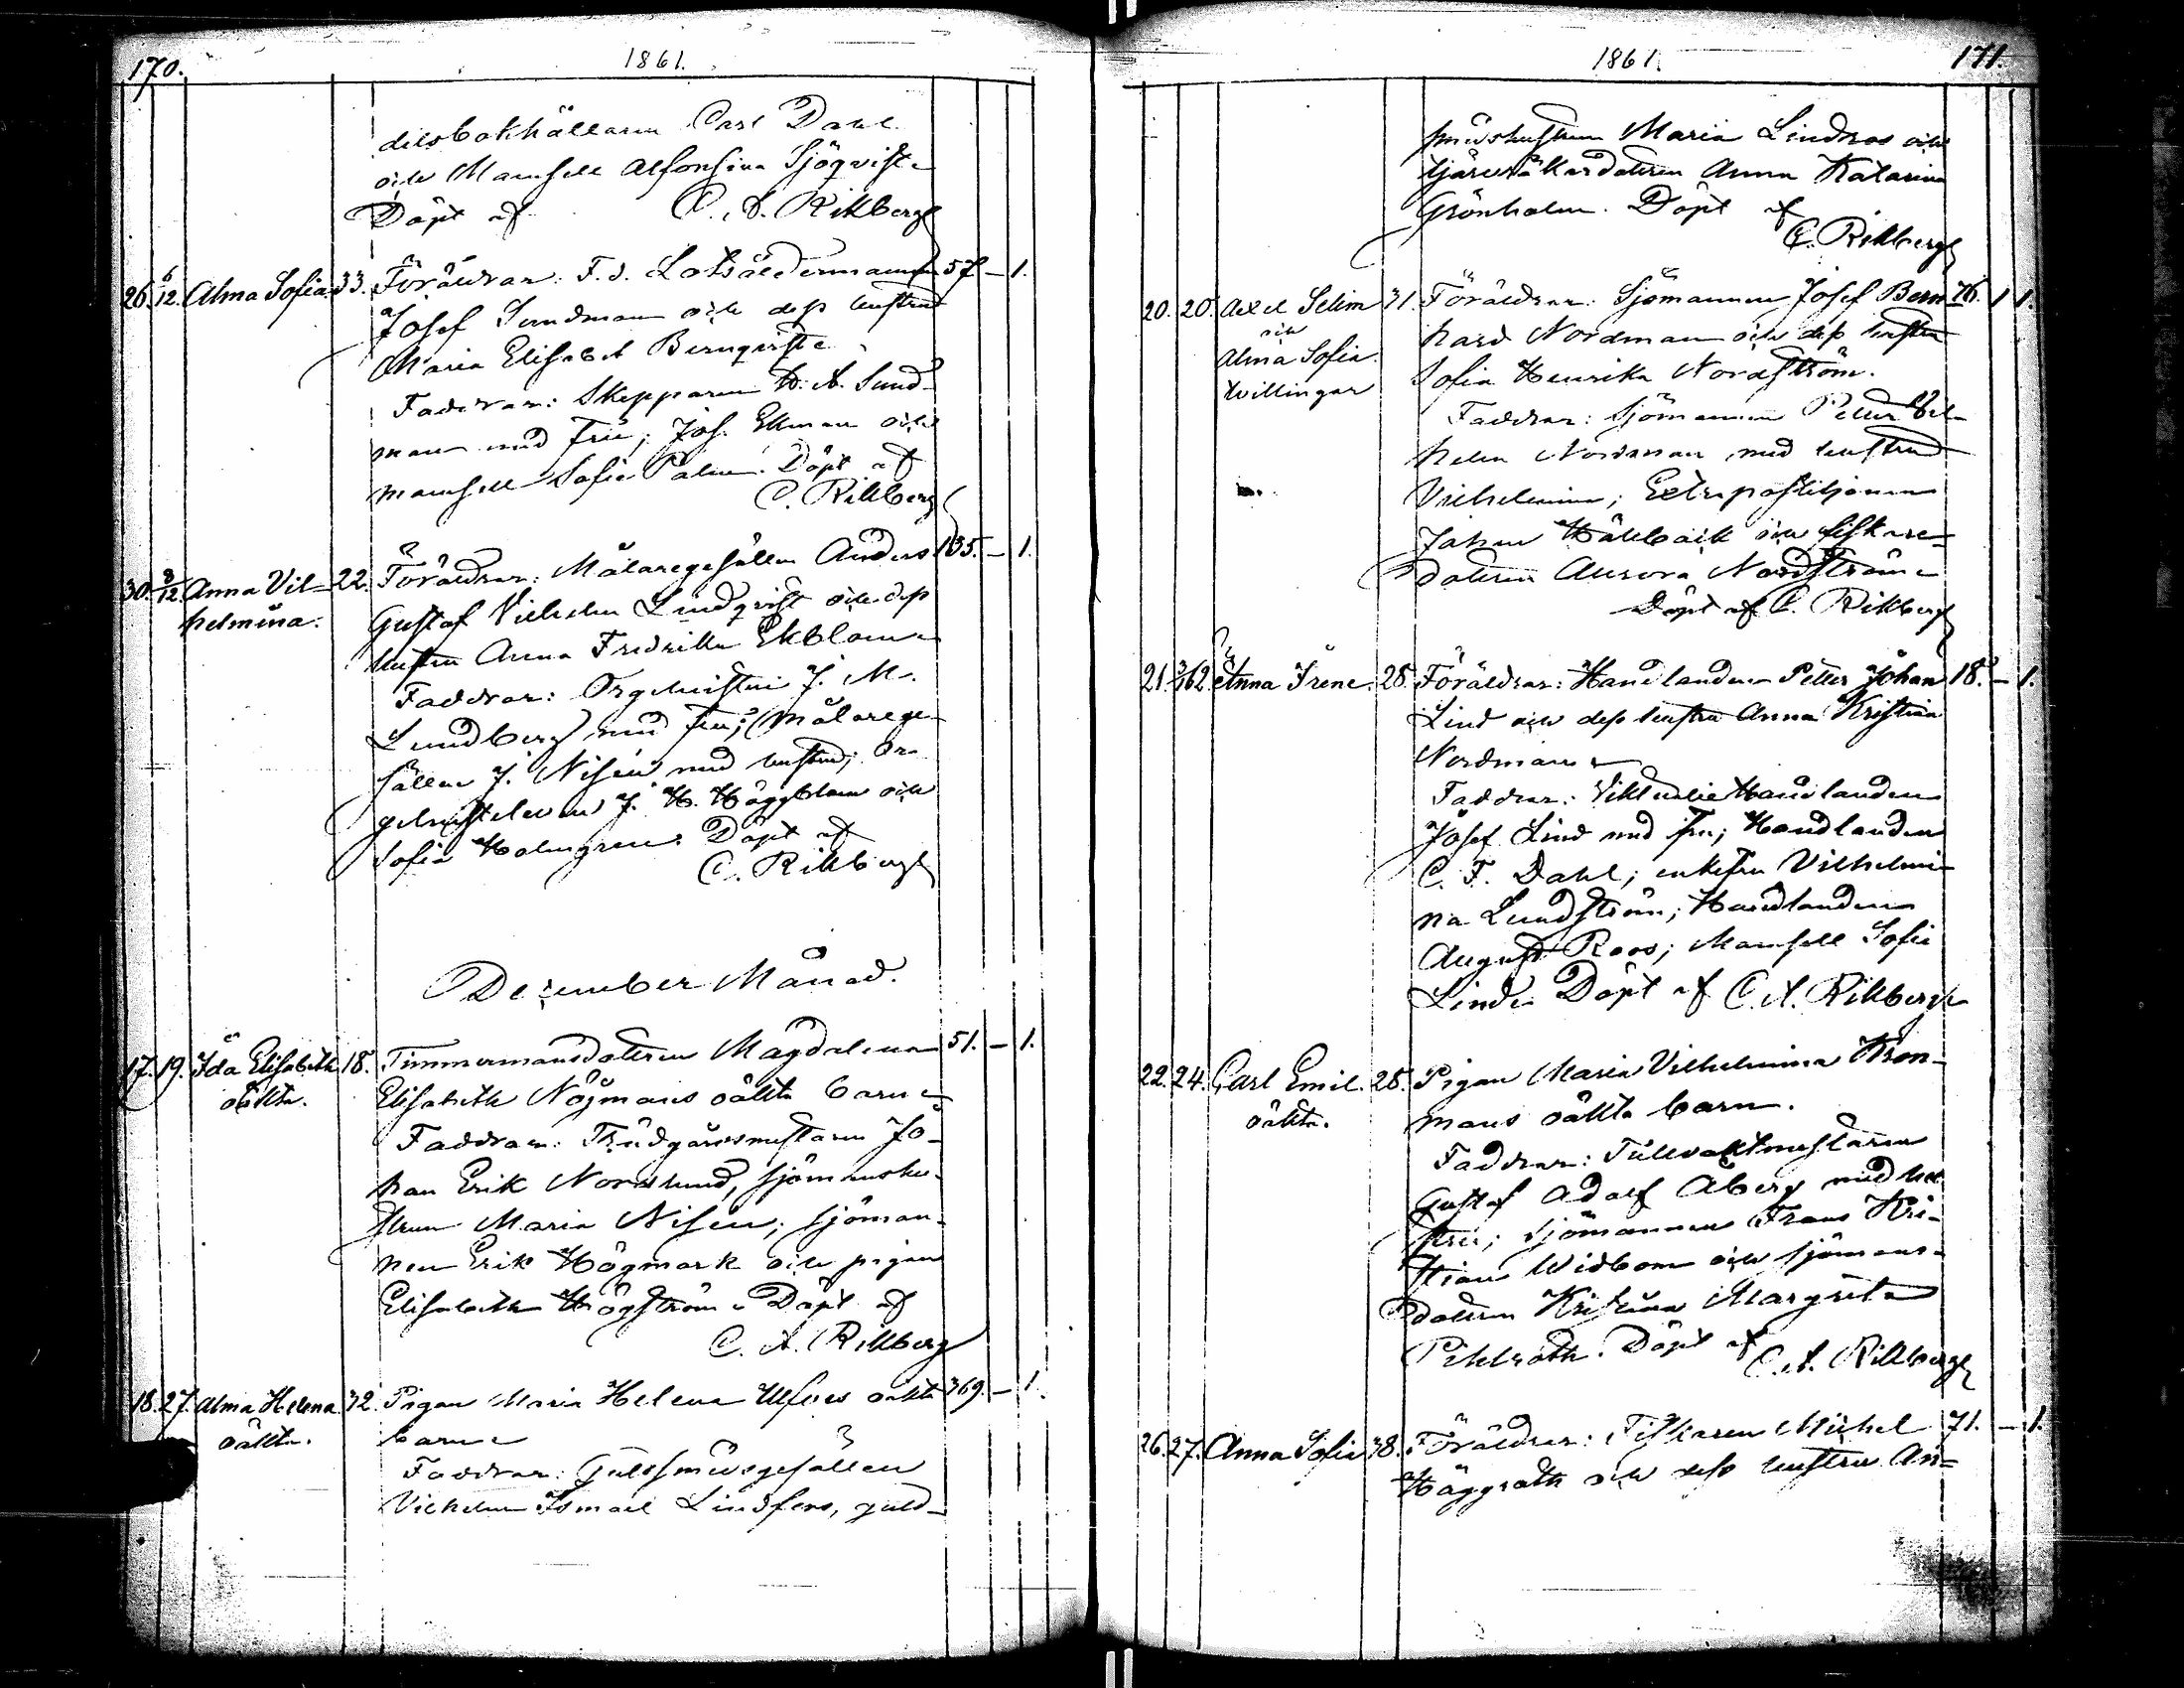 170.
1861.
delsbokhållaren Carl Dahl
och Mamsell Alfonsina Sjöqvist.
Döpt af C. A. Rikberg
26. 6/12. Alma Sofia. 33. Föräldrar: F.d. Lotsåldermannen 57 - 1.
Josef Sundman och dess hustru
Maria Elisabet Bernqvist.
Faddrar: Skepparen A. Sund-
man med fru; Jos. Ekman och
mamsell Sofia Palm. Döpt af
C. Rikberg
30. 8/12. Anna Vil- 22. Föräldrar: Målaregesällen Anders 135. - 1.
helmina. Gustaf Vilhelm Lindqvist och dess
hustru Anna Fredrika Ekblom.
Faddrar: Orgelnisten J. M.
Lundberg med fru; Målarege-
sällen J. Nisén med hustru; Or-
gelnisteleven J. H. Häggblom och
Sofia Holmgren. Döpt af
C. Rikberg
December Månad.
17. 19. Ida Elisabeth 18. Timmermansdottren Magdalena 51. - 1.
oäkta. Elisabeth Nögmans oäkta barn.
Faddrar: Trädgårdsmästaren Jo-
han Erik Nordlund, sjömanshu-
strun Maria Nisén; sjöman-
nen Erik Högmark och pigan
Elisabeth Högström. Döpt af
C. A. Rikberg
18. 27. Alma Helena. 32. Pigan Maria Helena Ulfves oäkta 369. - 1.
oäkta. barn.
Faddrar: Guldsmedsgesällen
Vilhelm Ismael Lindfors, guld-
1861.
171.
smedshustrun Maria Lindroos och
Grönholm. Döpt af
C. Rikberg
20. 20. Axel Selim 31. Föräldrar: Sjömannen Josef Bern- 76. 1 1.
och hard Nordman och dess hustru
Alma Sofia. Sofia Henrika Nordström.
tvillingar Faddrar: Sjömannen Petter Vil-
helm Nordman med hustru
Vilhelmina; Extrapostiljonen
Johan Hällbäck och fiskare-
dottren Aurora Nordström.
Döpt af C. Rikberg
21. 3/1 62. Anna Irene. 28. Föräldrar: Handlanden Petter Johan 18. - 1.
Lind och dess hustru Anna Kristina
Nordman.
Faddrar: Handlanden
Josef Lind med fru; Handlanden
C. F. Dahl; enkefru Vilhelmi-
na Lundström; Handlanden
August Roos; Mamsell Sofia
Lind. Döpt af C. A. Rikberg
22. 24. Carl Emil. 28. Pigan Maria Vilhelmina Kron-
oäkta. mans oäkta barn.
Faddrar: Tullvaktmästaren
Gustaf Adolf Åberg med hu-
stru; sjömannen Frans Kri-
stian Widbom och sjömans-
dottren Kristina Margreta
Pihlroth. Döpt af
C. A. Rikberg
26. 27. Anna Sofia 38. Föräldrar: Fiskaren Michel 71. - 1.
Häggroth och dess hustru An-